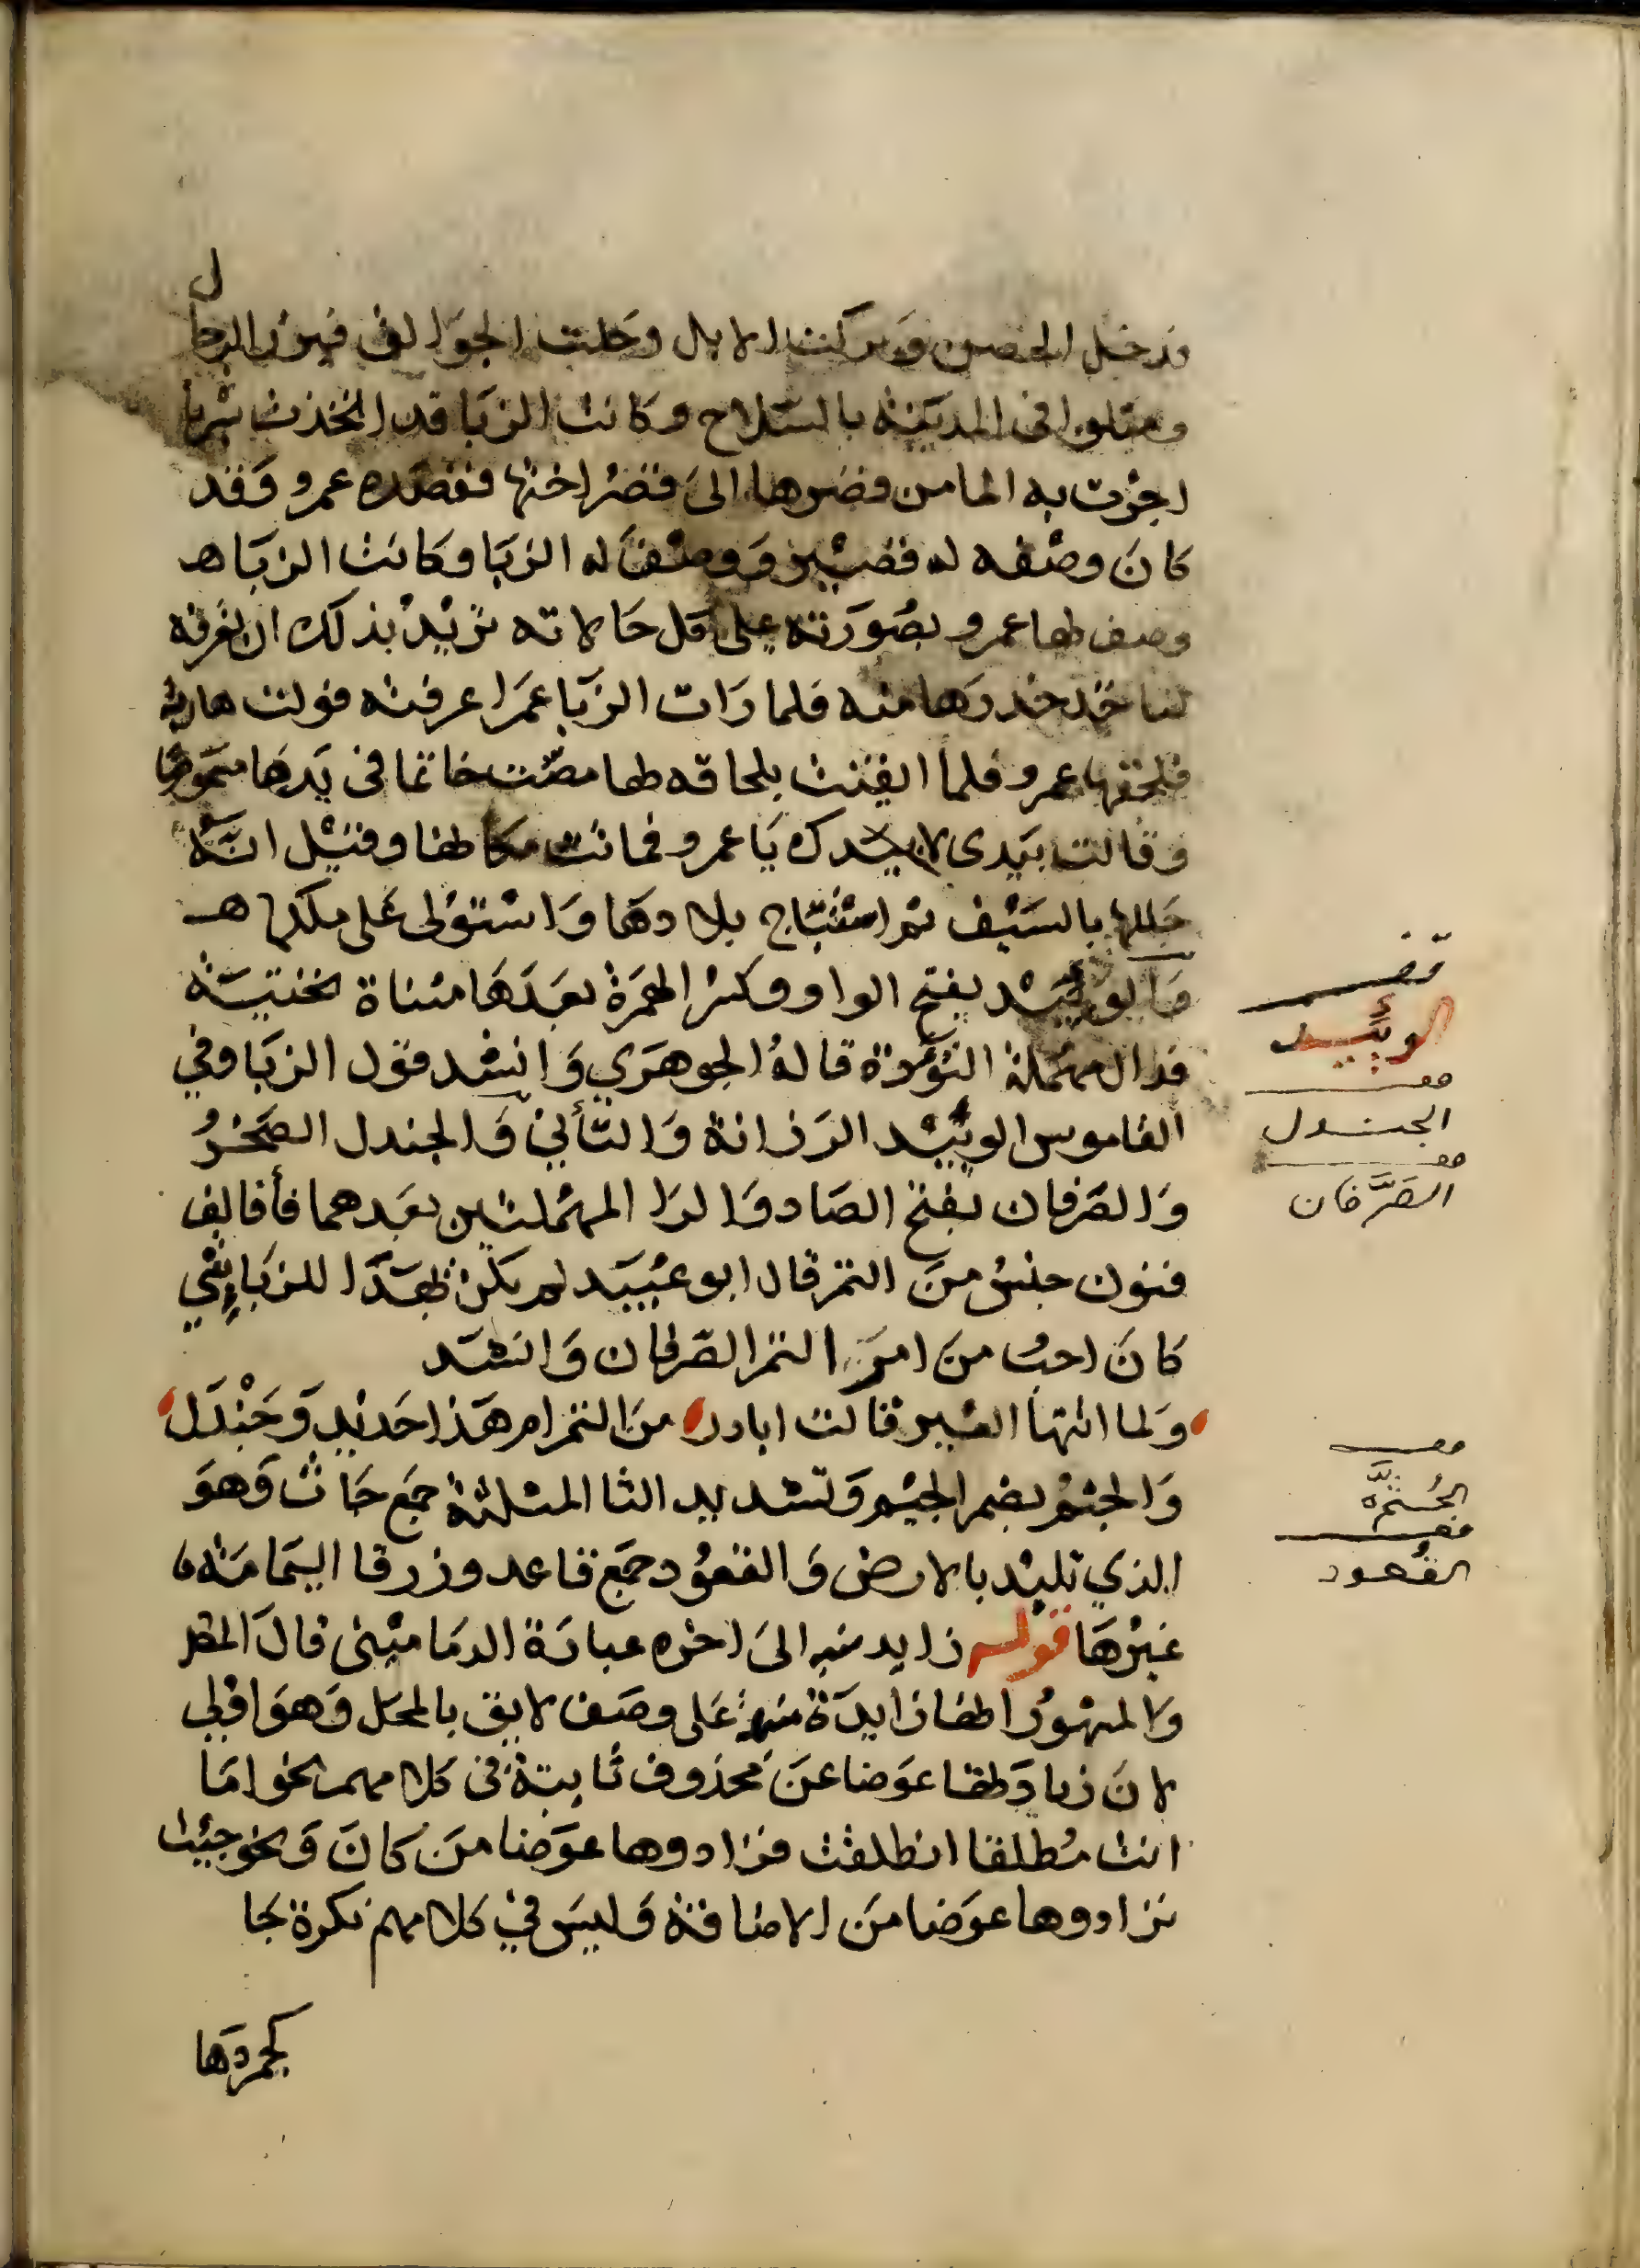 فدخل الحصن وبركت الابل وحلت الجوالق فبرز الرجال
ومثلوا فى المدينة بالسلاح وكانت الزبا قد اتخذت سربا
اجرت به الما من قصرها الى قصر اختها فقصده عمرو وقد
كان وصفه له قصير ووصف له الزبا وكانت الزبا
وصف لها عمرو بصورته على كل حالاته تريد بذلك ان تعرفه
لتاخذ حذرها منه فلما رات الزبا عمرا عرفته فولت هاربة
فلحقها عمرو فلما ايقنت بلحاقه لها مصت خاتما فى يدها مسموما
وقالت بيدى لا بيدك يا عمرو فماتت مكانها وقيل انه
جللها بالسيف ثم استباح بلادها واستولى على ملكها هـ
والوئيد بفتح الواو وكسر الهمزة بعدها مثناة تحتية
فدال مهملة التؤدة قاله الجوهري وانشد قول الزبا وفي
القاموس الوئيد الرزانة والتأني والجندل الصخر
والصرفان بفتح الصاد والرا المهملتين بعدهما فأفالف
فنون جنس من التمر قال ابو عبيد لم يكن يهدا للزباء شي
كان احب من التمر الصرفان وانشد
ولما اتتها العير قالت ابارد من التمر ام هذا حديد وجندل
والجثم بضم الجيم وتشديد الثا المثلثة جمع جاث وهو
الذي تلبد بالارض والقعود جمع قاعد وزرقا اليمامة
غيرها قوله زايد منبه الى اخره عبارة الدماميني قال
والمشهور انها زايدة منبهة على وصف لايق بالمحل وهو اولى
لان زيادتها عوضا عن محذوف ثابتة فى كلامهم نحو اما
انت مطلقا انطلقت فزادوها عوضا من كان ونحو حيثما
نزادوها عوضا من الاضافة وليس في كلامهم نكرة جا
بمجردها
قف
الوئيد
قف
الجندل
قف
الصرفان
قف
الجثم
قف
القعود